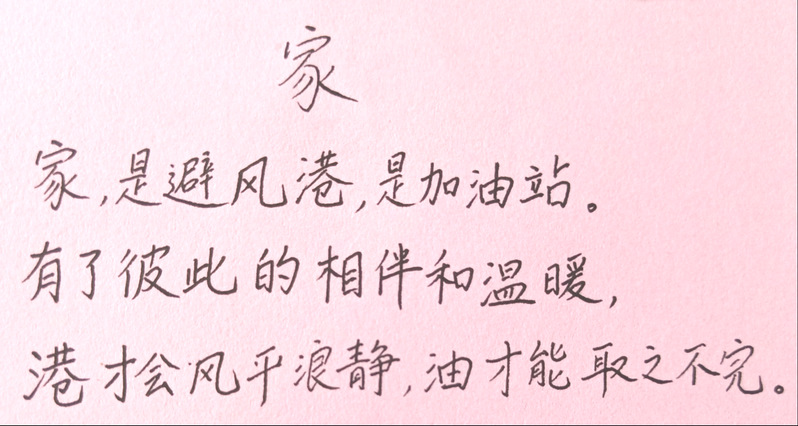 家
家,是避风港,是加油站。
有了彼此的相伴和温暖,
港才会风平浪静,油才能取之不完。